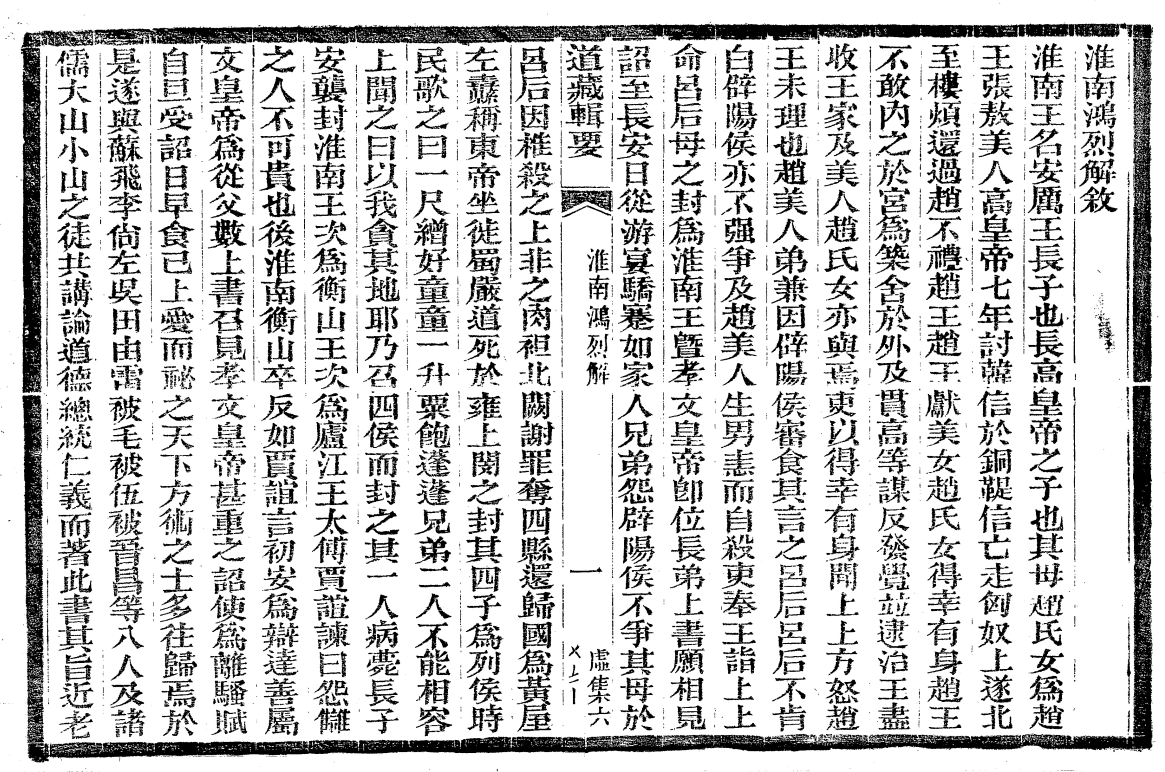 淮南鴻烈解敘
淮南王名安厲王長子也長高皇帝之子也其母趙氏女爲趙
王張敖美人高皇帝七年討韓信於銅鞮信亡走匈奴上遂北
至樓煩還過趙不禮趙王趙王獻美女趙氏女得幸有身趙王
不敢內之於宮爲築舍於外及貫高等謀反發覺並逮治王盡
收王家及美人趙氏女亦與焉吏以得幸有身聞上上方怒趙
王未理也趙美人弟兼因辟陽侯審食其言之呂后呂后不肯
白辟陽侯亦不强爭及趙美人生男恚而自殺吏奉王詣上上
命呂后母之封爲淮南王暨孝文皇帝卽位長弟上書願相見
詔至長安日從游宴驕蹇如家人兄弟怨辟陽侯不爭其母於
道藏輯要
淮南鴻烈解
一
虛集六
呂后因椎殺之上非之肉袒北闕謝罪奪四縣還歸國爲黃屋
左纛稱東帝坐徙蜀嚴道死於雍上閔之封其四子爲列侯時
民歌之曰一尺繒好童童一升粟飽蓬蓬兄弟二人不能相容
上聞之曰以我貪其地耶乃召四侯而封之其一人病薨長子
安襲封淮南王次爲衡山王次爲廬江王太傅賈誼諫曰怨讎
之人不可貴也後淮南衡山卒反如賈誼言初安爲辯達善屬
文皇帝爲從父數上書召見孝文皇帝甚重之詔使爲離騷賦
自旦受詔日早食已上愛而祕之天下方術之士多往歸焉於
是遂與蘇飛李尙左吳田由雷被毛被伍被晉昌等八人及諸
儒大山小山之徒共講論道德總統仁義而著此書其旨近老